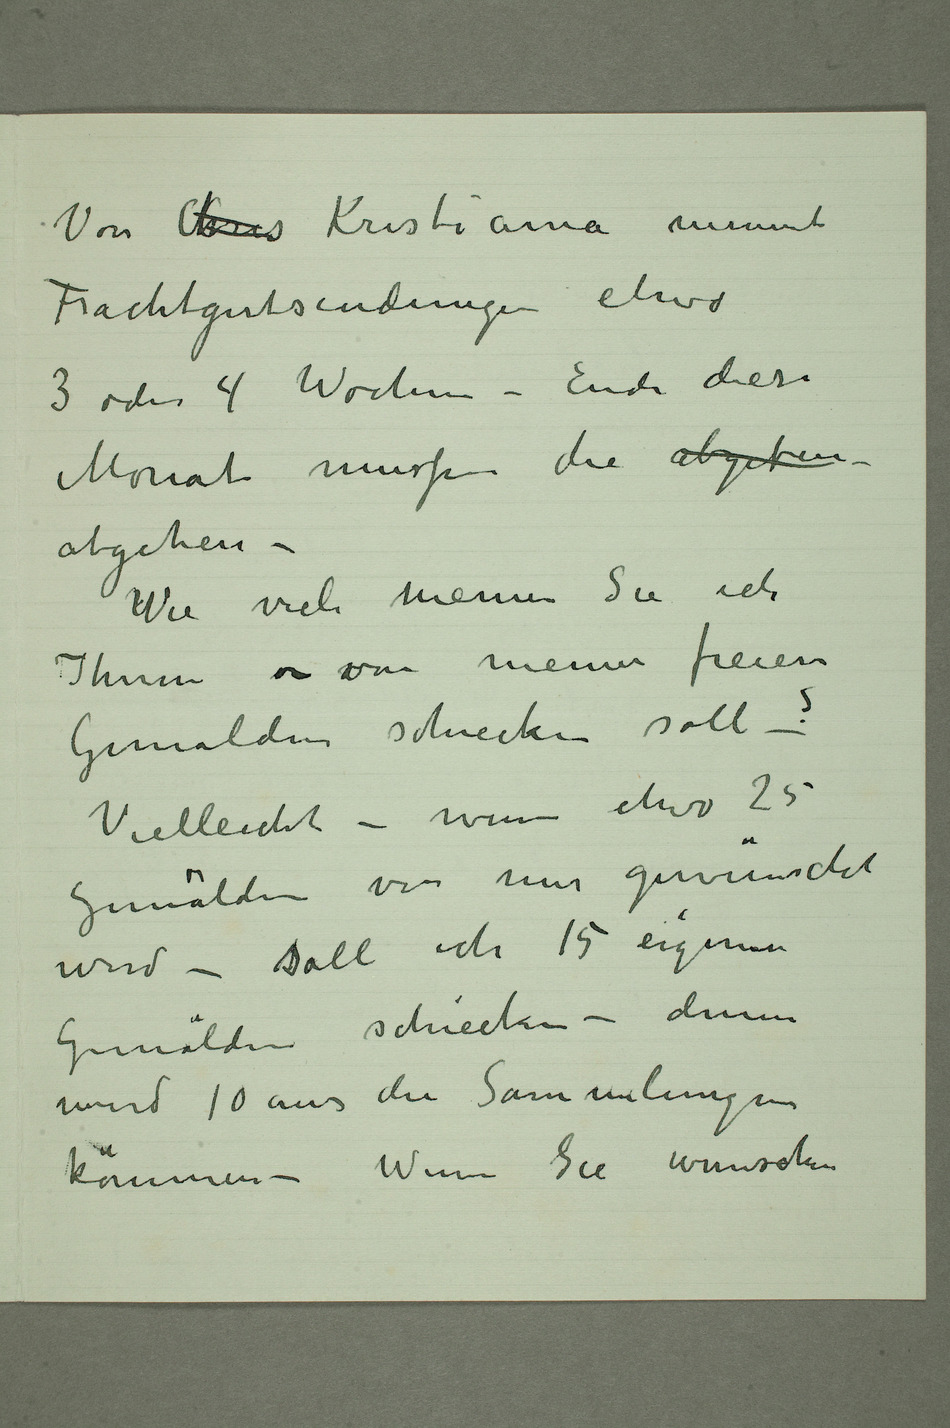 Von Chris Kristiania nimmt
Frachtgutsendungen etwa
3 oder 4 Wochen – Ende diese
Monat mussen die abgeben –
abgehen –
Wie viele meinen Sie ich
Ihnen von meinen freien
Gemalden schiecken soll – ?
Vielleicht – wenn etwa 25
Gemälden von mir gewünscht
wird – soll ich 15 eigenen
Gemälden schiecken – denen
wird 10 aus die Sammlungen
kömmen – Wenn Sie wunschen